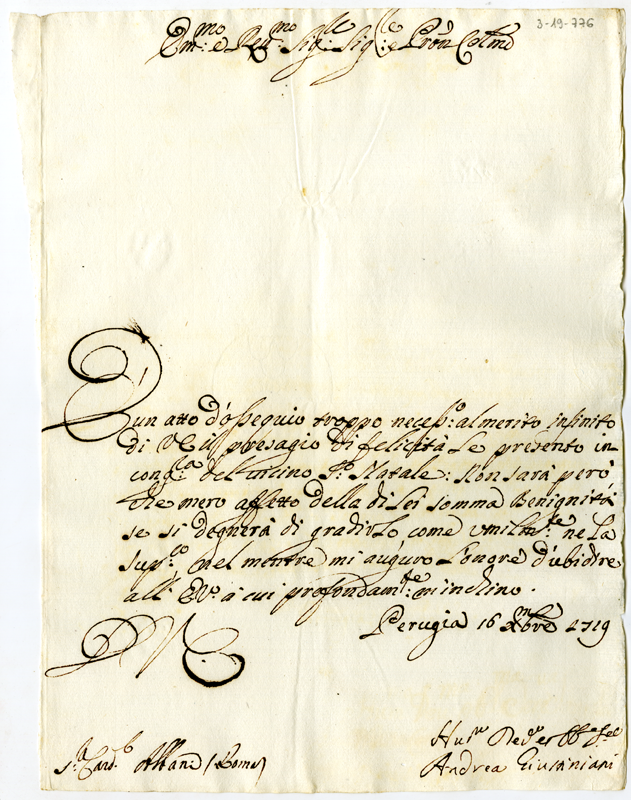 3-19-776
Em.mo e Rev.mo Sig.re Sig.re e Pron Colmo
È un atto d'ossequio troppo necess.o al merito infinito
di VE il presagio di felicità Le presento in
cong.ra del vicino S.o Natale: Non sarà però
che mero affetto della di Lei somma Benignità
se si degnerà di gradirlo, come umilm.te ne La
sup.co nel mentre mi auguro l'onore d'ubidire
all' E.V. à cui profondam.te m'inclino.
Perugia 16 Xbre 1719
D V E
S.r Card. Albani (Roma)
Hu.mo Dev.mo
Andrea Giustiniani